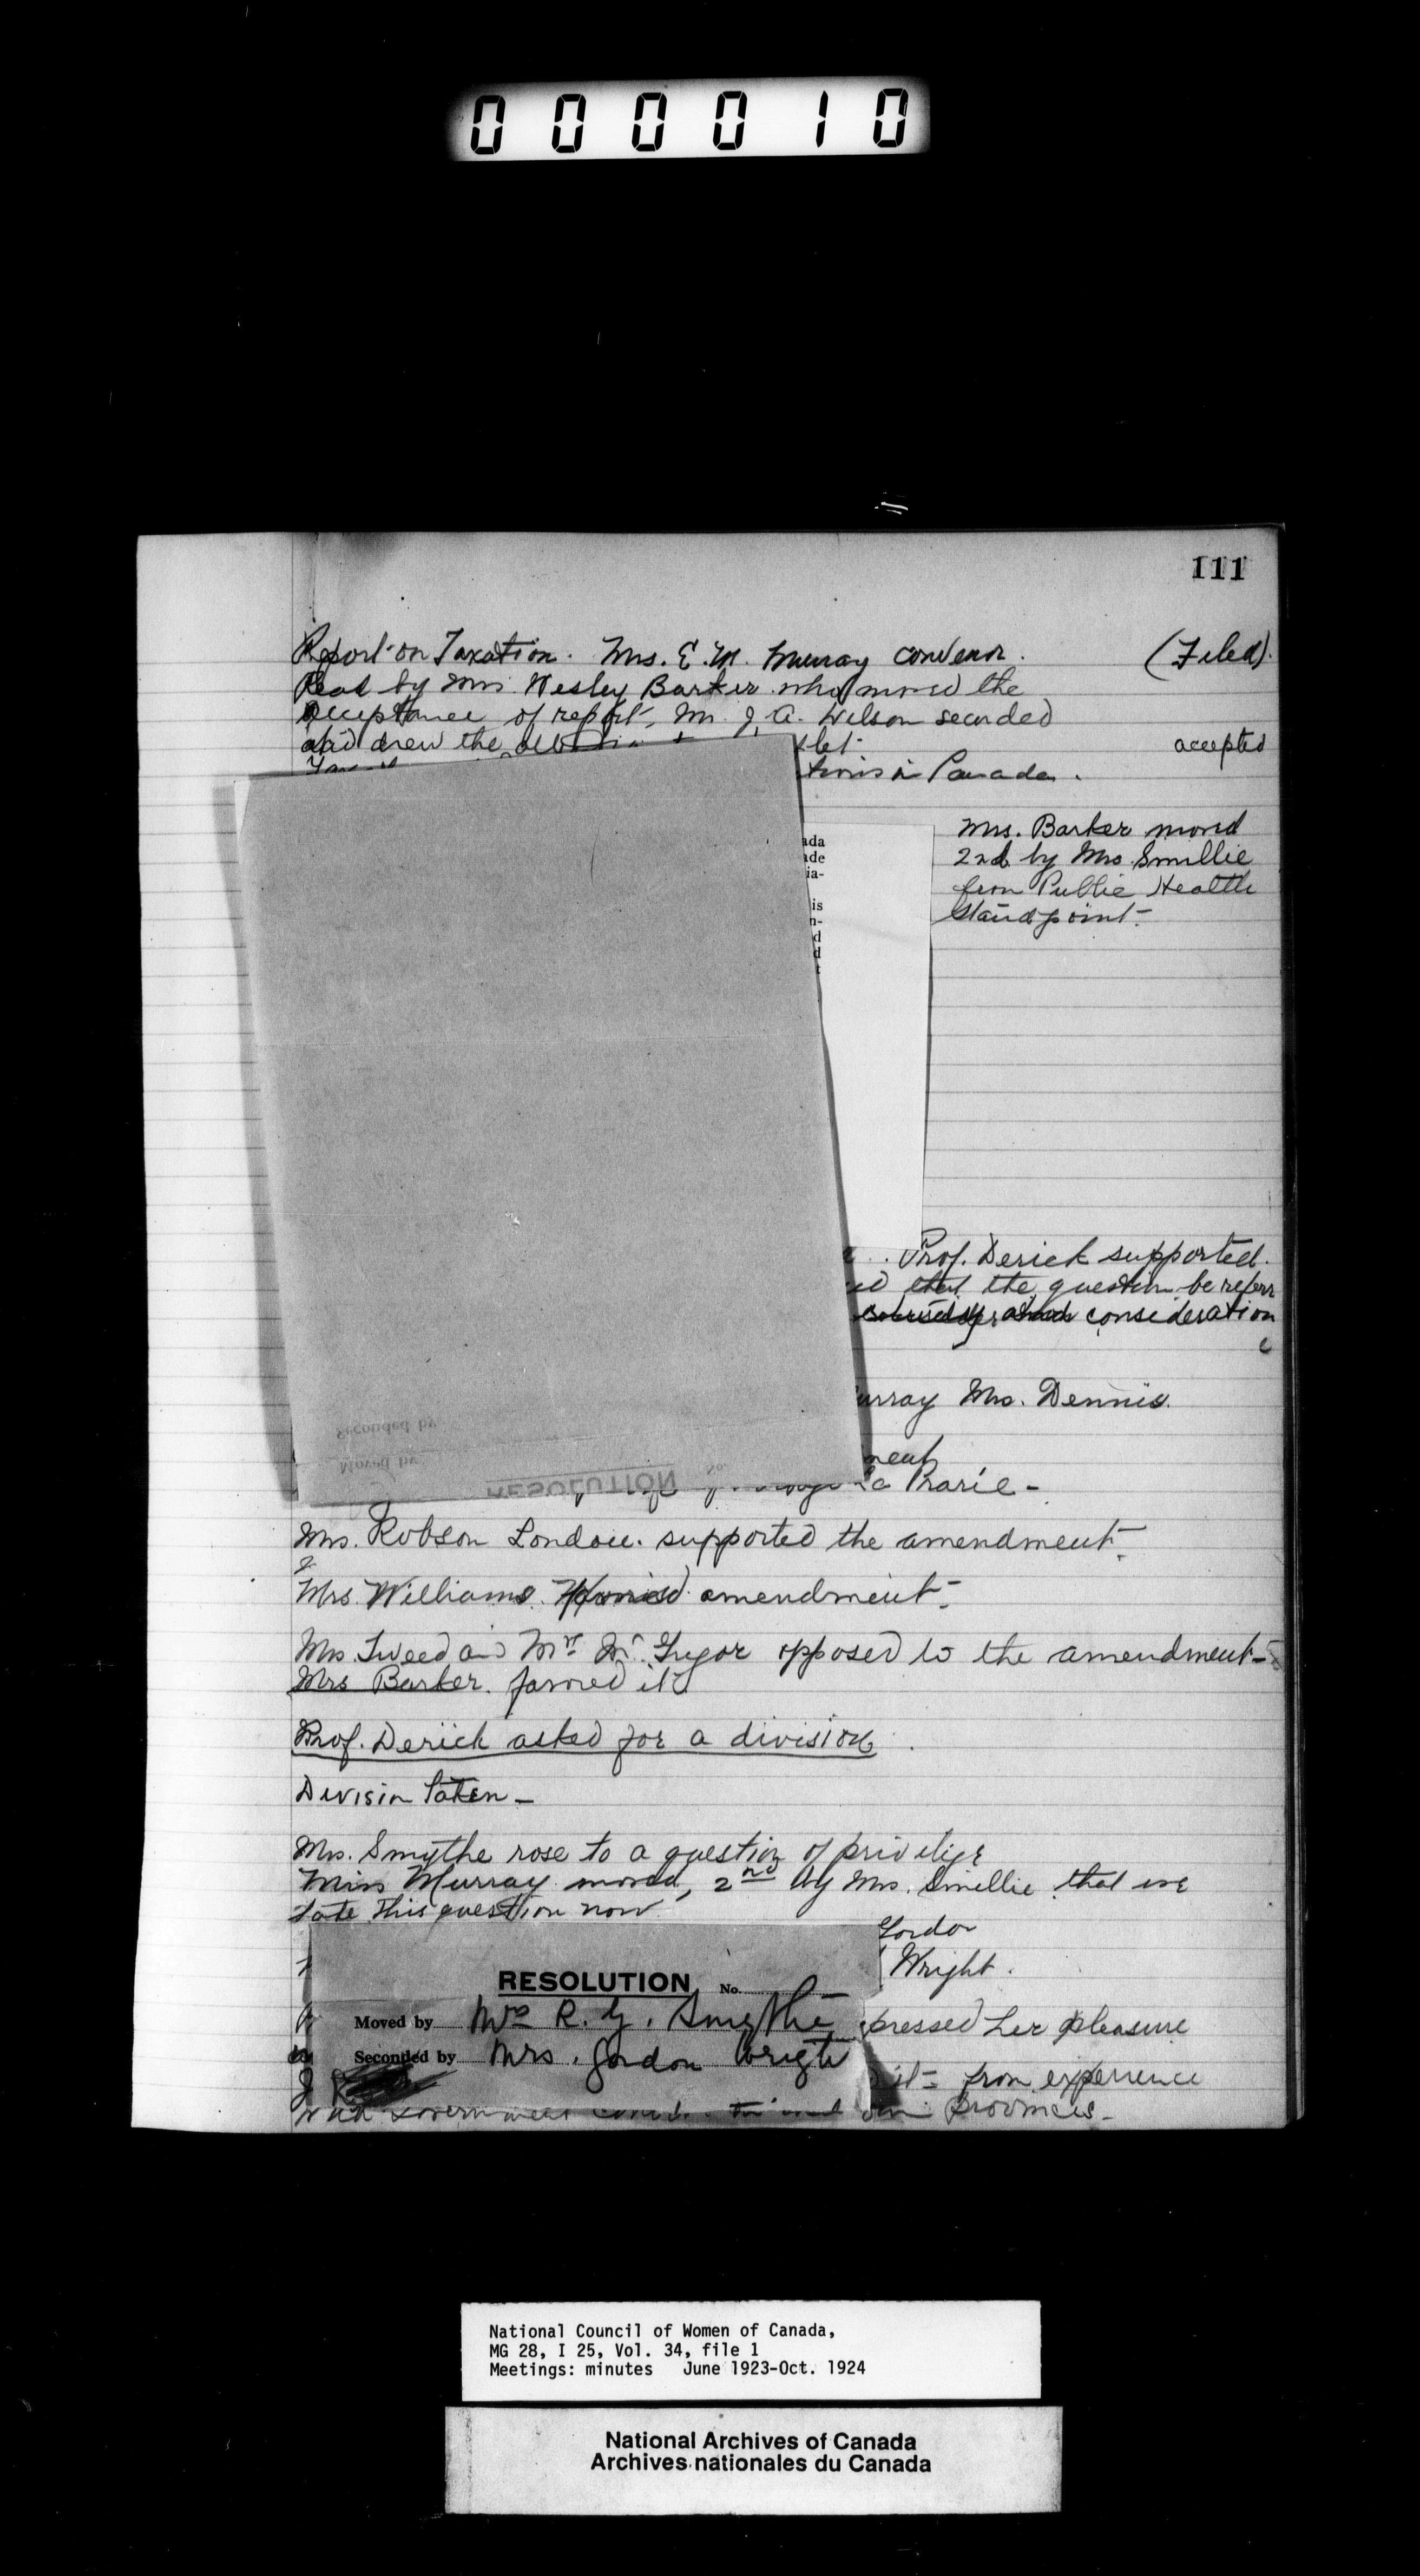 000010
111
Report on Taxation. Mrs. E. M. Murray convenor. (Filed).
Read by Mrs. Wesley Barker who moved the
acceptance of report, Mrs. J. A. Wilson seconded
and drew the
accepted
in Canada.
Mrs. Barker moved
2nd by Mrs. Smillie
from Public Health
Standpoint-
ada
ade
ia-
is
n-
d
d
t
Prof. Derick supported.
ed that the question be referr
consideration
urray Mrs. Dennis.
ment
La Prarie-
Seconded by
Moved by
RESOLUTION No.
Mrs. Robson London. supported the amendment-
Mrs. Williams amendment-
Mrs. Tweed and Mrs. McGregor opposed to the amendment-
Mrs Barker. favored it
Prof. Derick asked for a division.
Division taken-
Mrs. Smythe rose to a question of privilige
Miss Murray moved, 2nd by Mrs. Smillie that we
take this question now
Gordon
Wright.
RESOLUTION No.
Moved by Mrs R. G. Smythe
Seconded by Mrs. Gordon Wright
pressed her pleasure
it- from experience
with Government Provinces-
National Council of Women of Canada,
MG 28, I 25, Vol. 34, file 1
Meetings: minutes June 1923-Oct. 1924
National Archives of Canada
Archives nationales du Canada